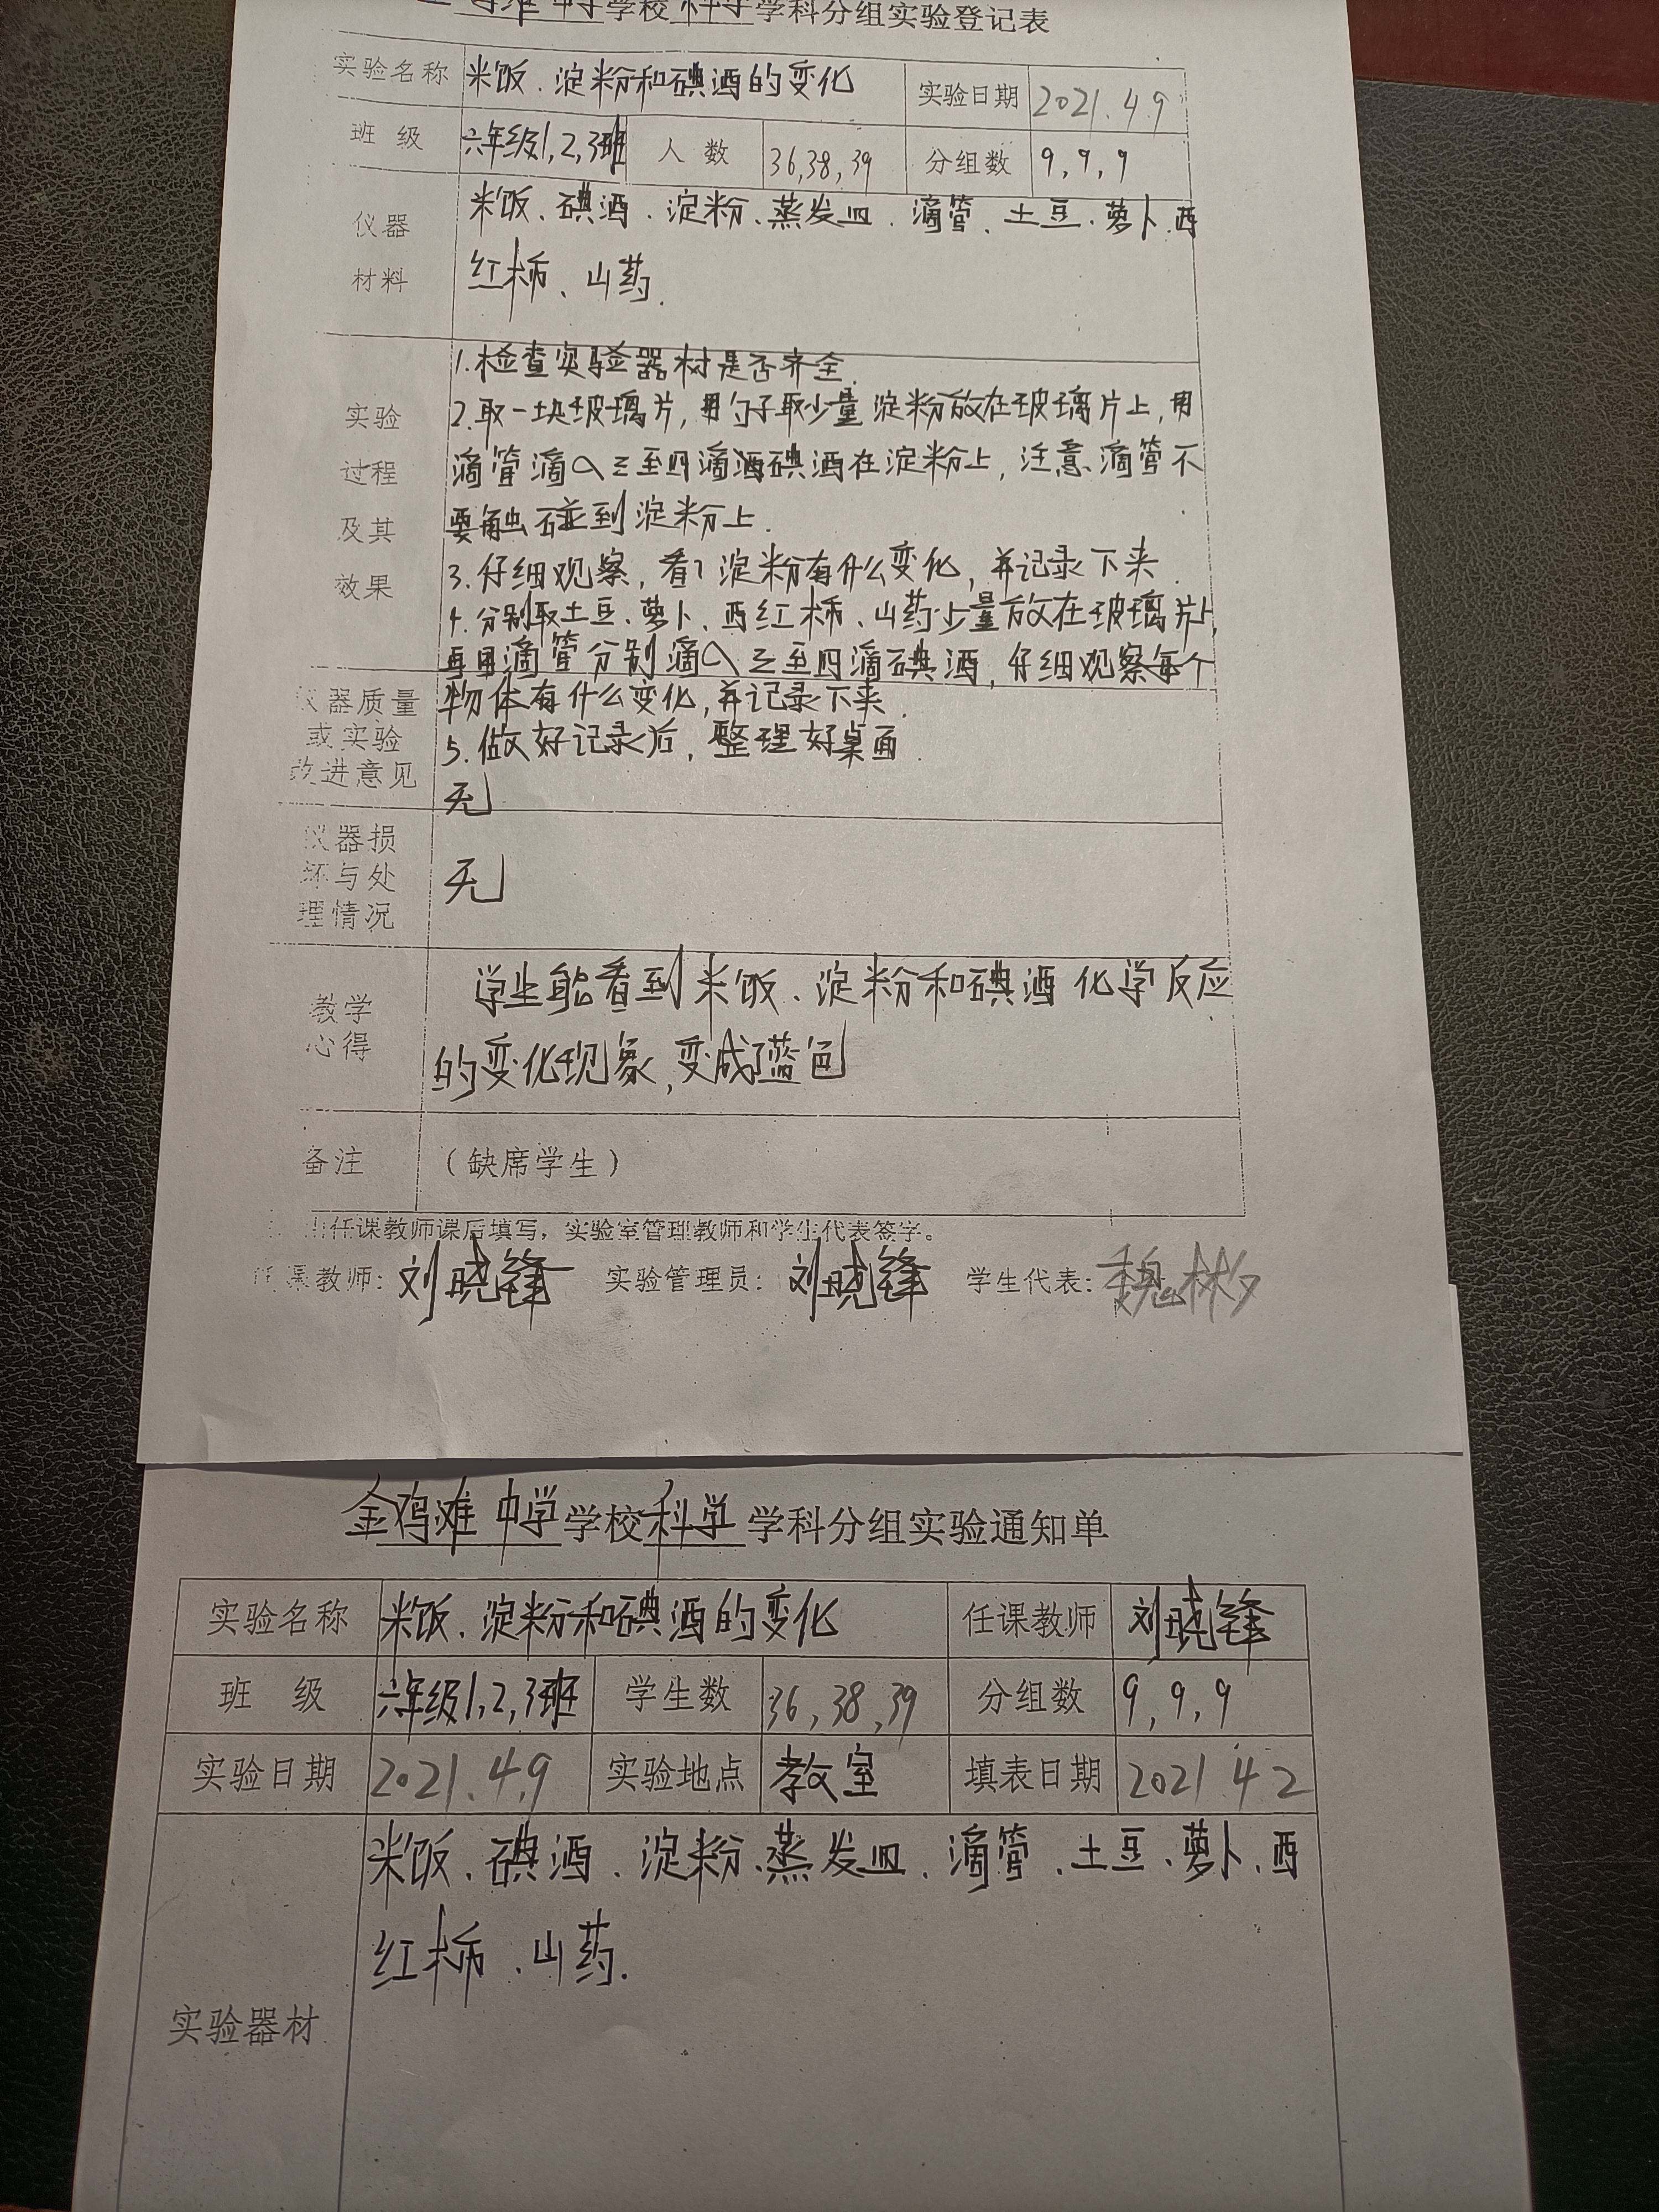 鸡滩 中学学校 科学学科分组实验登记表
实验名称 米饭、淀粉和碘酒的变化 实验日期 2021.4.9
班 级 六年级1,2,3班 人 数 36,38,39 分组数 9,9,9
仪器 材料 米饭、碘酒、淀粉、蒸发皿、滴管、土豆、萝卜、西
红柿、山药.
实验 过程 及其 效果 1.检查实验器材是否齐全.
2.取一块玻璃片,用勺子取少量淀粉放在玻璃片上,用
滴管滴入三至四滴碘酒在淀粉上,注意滴管不
要触碰到淀粉上.
3.仔细观察,看 淀粉有什么变化,并记录下来.
4.分别取土豆、萝卜、西红柿、山药少量放在玻璃片上,
再用滴管分别滴入三至四滴碘酒,仔细观察每个
物体有什么变化,并记录下来.
5.做好记录后,整理好桌面.
仪器质量 或实验 改进意见 无
仪器损 坏与处 理情况 无
教学 心得 学生能看到米饭、淀粉和碘酒化学反应
的变化现象,变成了蓝色
备注 (缺席学生)
由任课教师课后填写,实验室管理教师和学生代表签字。
任课教师: 刘晓锋 实验管理员: 刘晓锋 学生代表: 魏彬
金鸡滩 中学学校 科学 学科分组实验通知单
实验名称 米饭、淀粉和碘酒的变化 任课教师 刘晓锋
班 级 六年级1,2,3班 学生数 36,38,39 分组数 9,9,9
实验日期 2021.4.9 实验地点 教室 填表日期 2021 4 2
实验器材 米饭、碘酒、淀粉、蒸发皿、滴管、土豆、萝卜、西
红柿、山药.